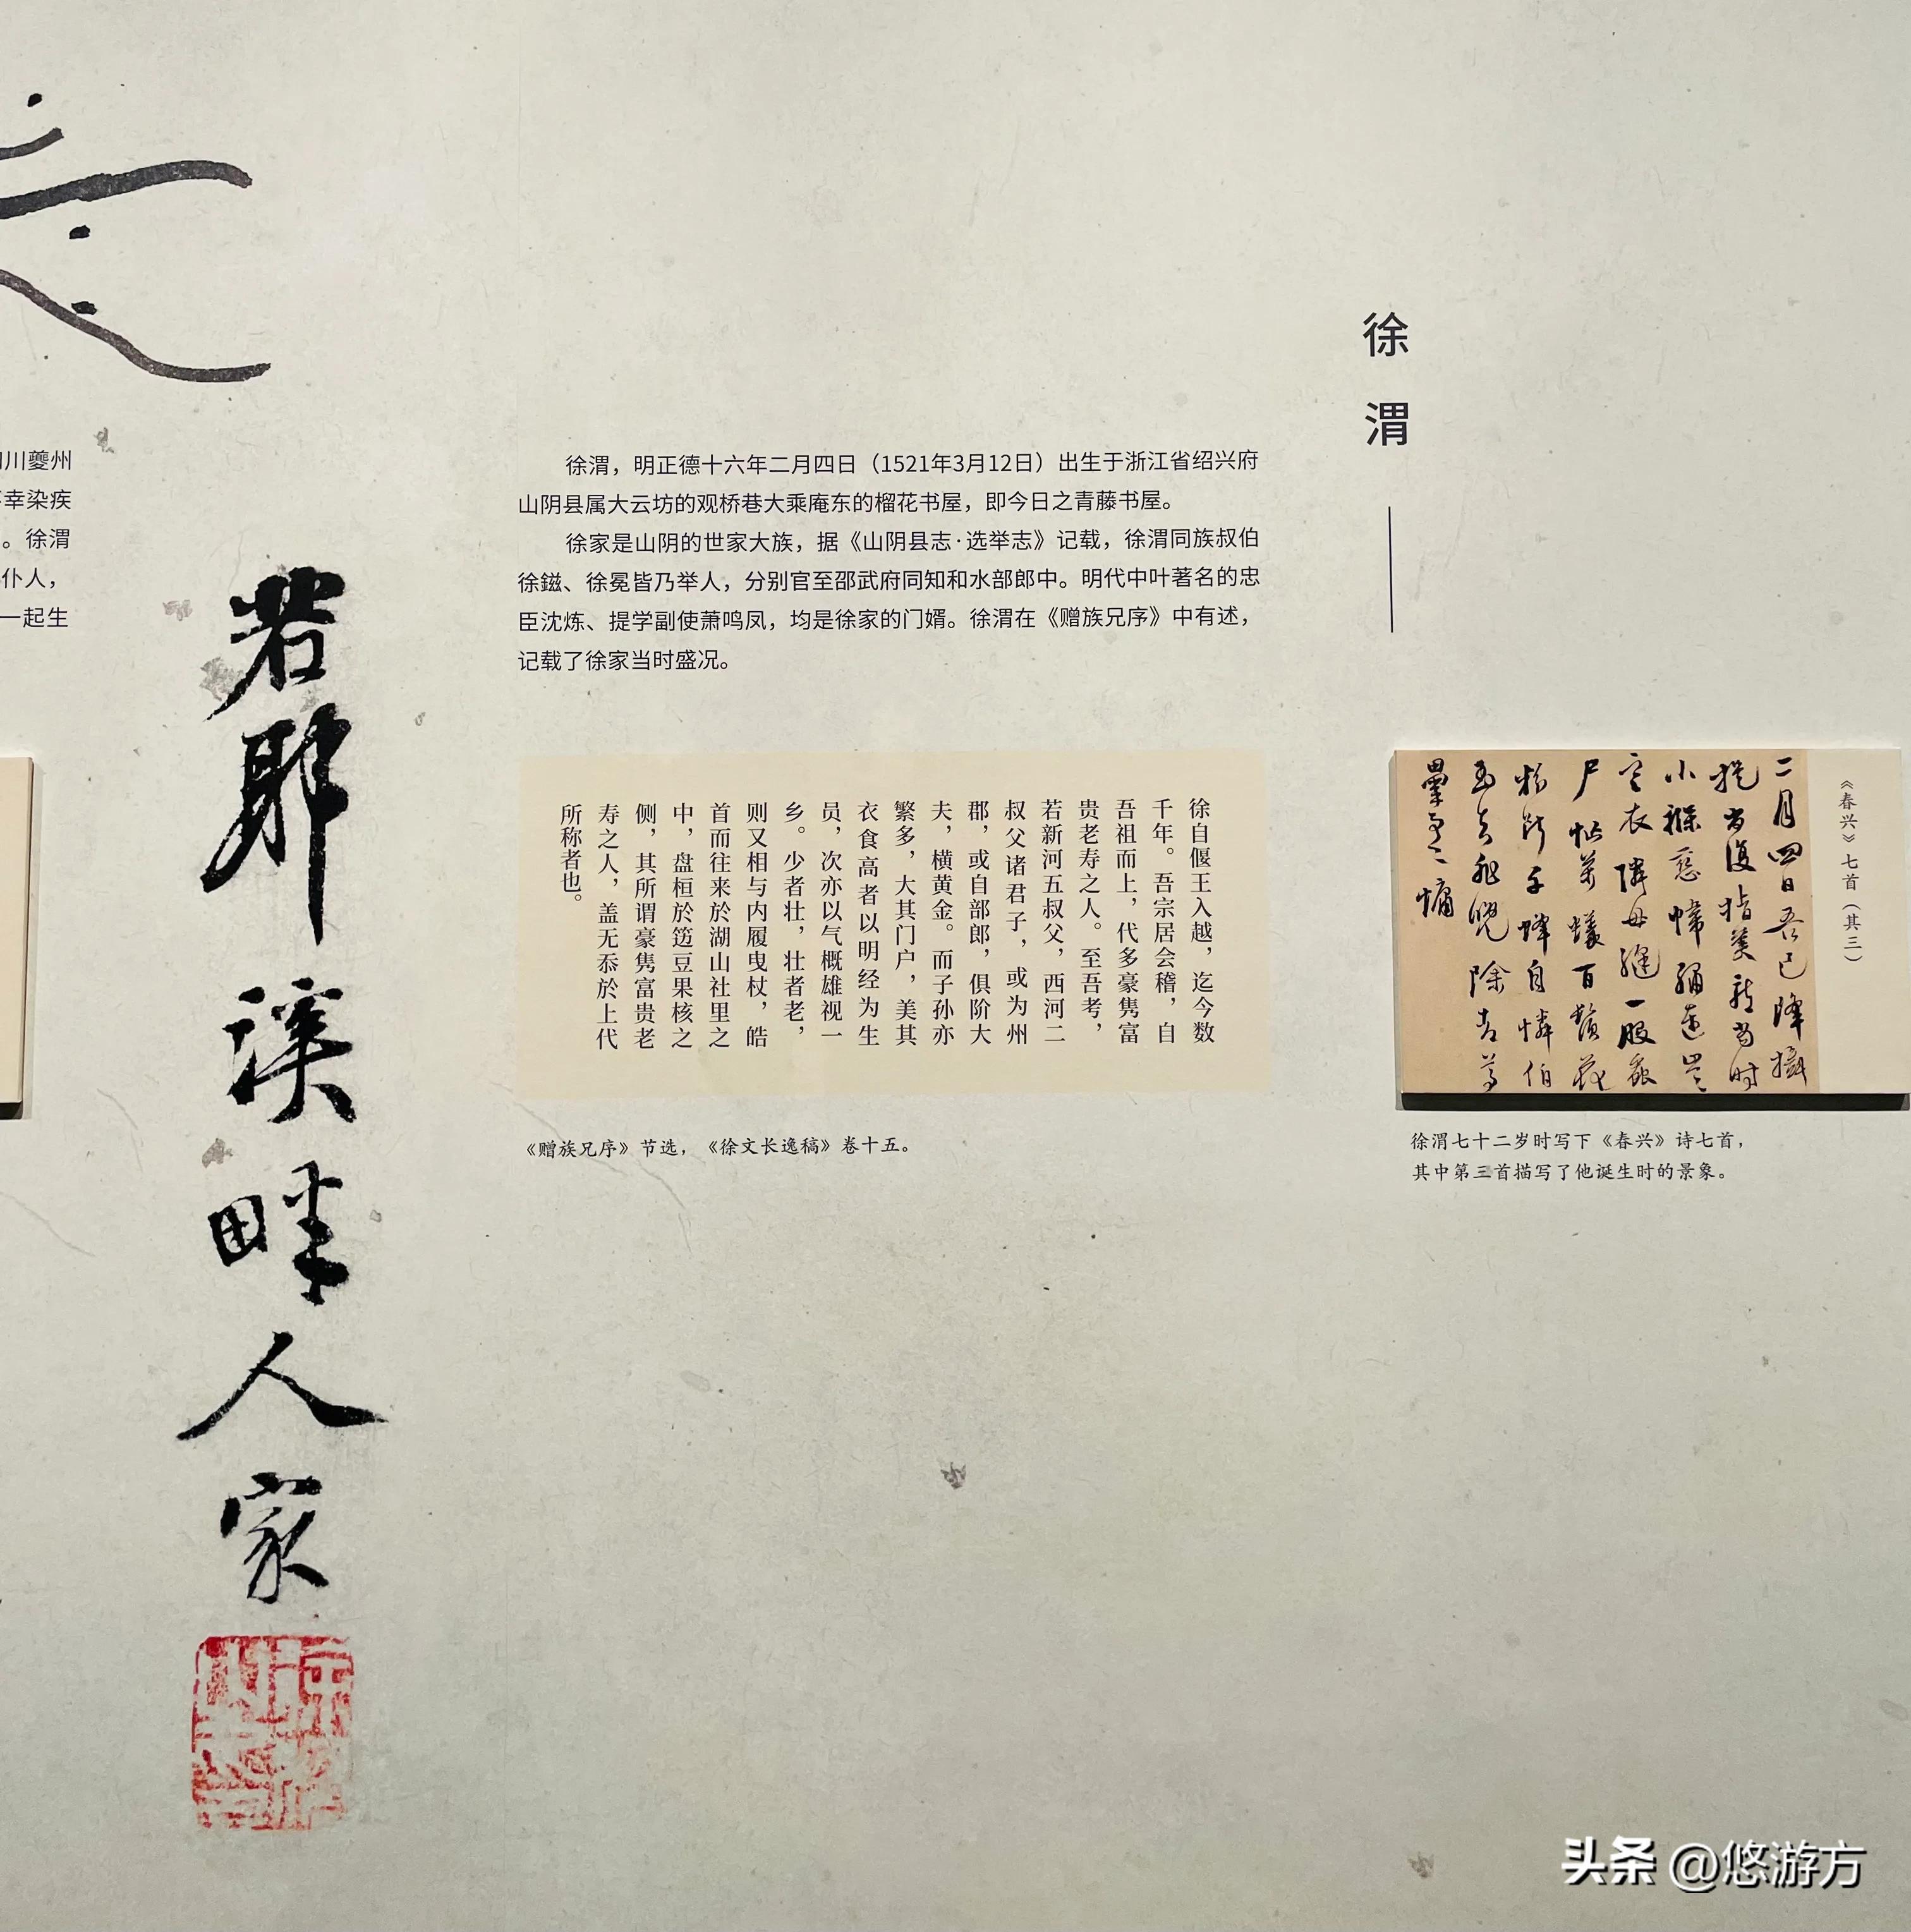 徐渭
徐渭，明正德十六年二月四日（1521年3月12日）出生于浙江省绍兴府
山阴县属大云坊的观桥巷大乘庵东的榴花书屋，即今日之青藤书屋。
徐家是山阴的世家大族，据《山阴县志·选举志》记载，徐渭同族叔伯
徐鎡、徐冕皆乃举人，分别官至邵武府同知和水部郎中。明代中叶著名的忠
臣沈炼、提学副使萧鸣凤，均是徐家的门婿。徐渭在《赠族兄序》中有述，
记载了徐家当时盛况。
徐自偃王入越，迄今数
千年。吾宗居会稽，自
吾祖而上，代多豪隽富
贵老寿之人。至吾考，
若新河五叔父，西河二
叔父诸君子，或为州
郡，或自部郎，俱阶大
夫，横黄金。而子孙亦
繁多，大其门户，美其
衣食高者以明经为生
员，次亦以气概雄视一
乡。少者壮，壮者老，
则又相与内履曳杖，皓
首而往来於湖山社里之
中，盘桓於笾豆果核之
侧，其所谓豪隽富贵老
寿之人，盖无忝於上代
所称者也。
《赠族兄序》节选，《徐文长逸稿》卷十五。
《春兴》七首（其三）
二月四日吾已降攝
提尚復指蒼龍當時
小褓慈幃繃連歲
寒衣隣母縫一股虀
尸怯萬蟻百鬚花
粉斷孑蜂自憐伯
玉知非晚除却尊
罍事事慵
徐渭七十二岁时写下《春兴》诗七首，
其中第三首描写了他诞生时的景象。
若耶溪畔人家
川夔州
幸染疾
。徐渭
仆人，
一起生
头条 @悠游方